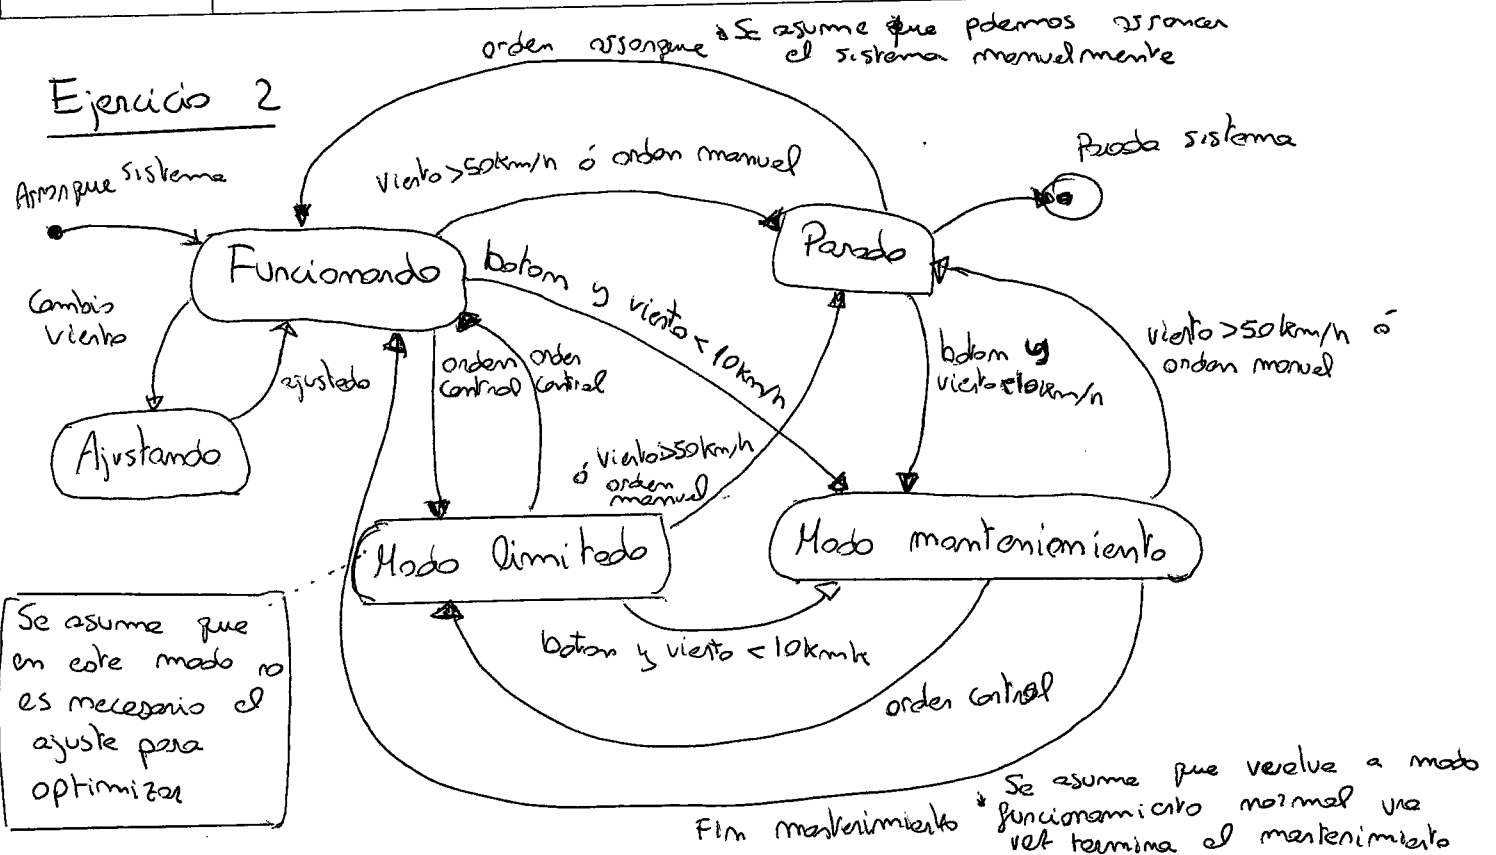 orden arranque * Se asume que podemos arrancar
el sistema manualmente
Ejercicio 2
Arranque sistema
viento>50km/h ó orden manual
Parada sistema
Funcionando
Parado
boton y viento < 10km/h
Cambio
viento
ajustado
orden
control
orden
control
boton y
viento<10km/h
viento>50km/h ó
orden manual
Ajustando
viento>50km/h
ó orden
manual
Modo limitado
Modo mantenimiento
Se asume que
en este modo no
es necesario el
ajuste para
optimizar
boton y viento <10kmh
orden control
Fin mantenimiento
* Se asume que vuelve a modo
funcionamiento normal una
vez termina el mantenimiento